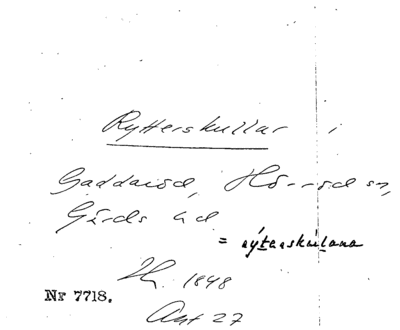 Rytterskullar i
Gaddaröd, Hörröd sn,
Gärds hd
= rýtarskúlana
1848
Nr 7718.
27